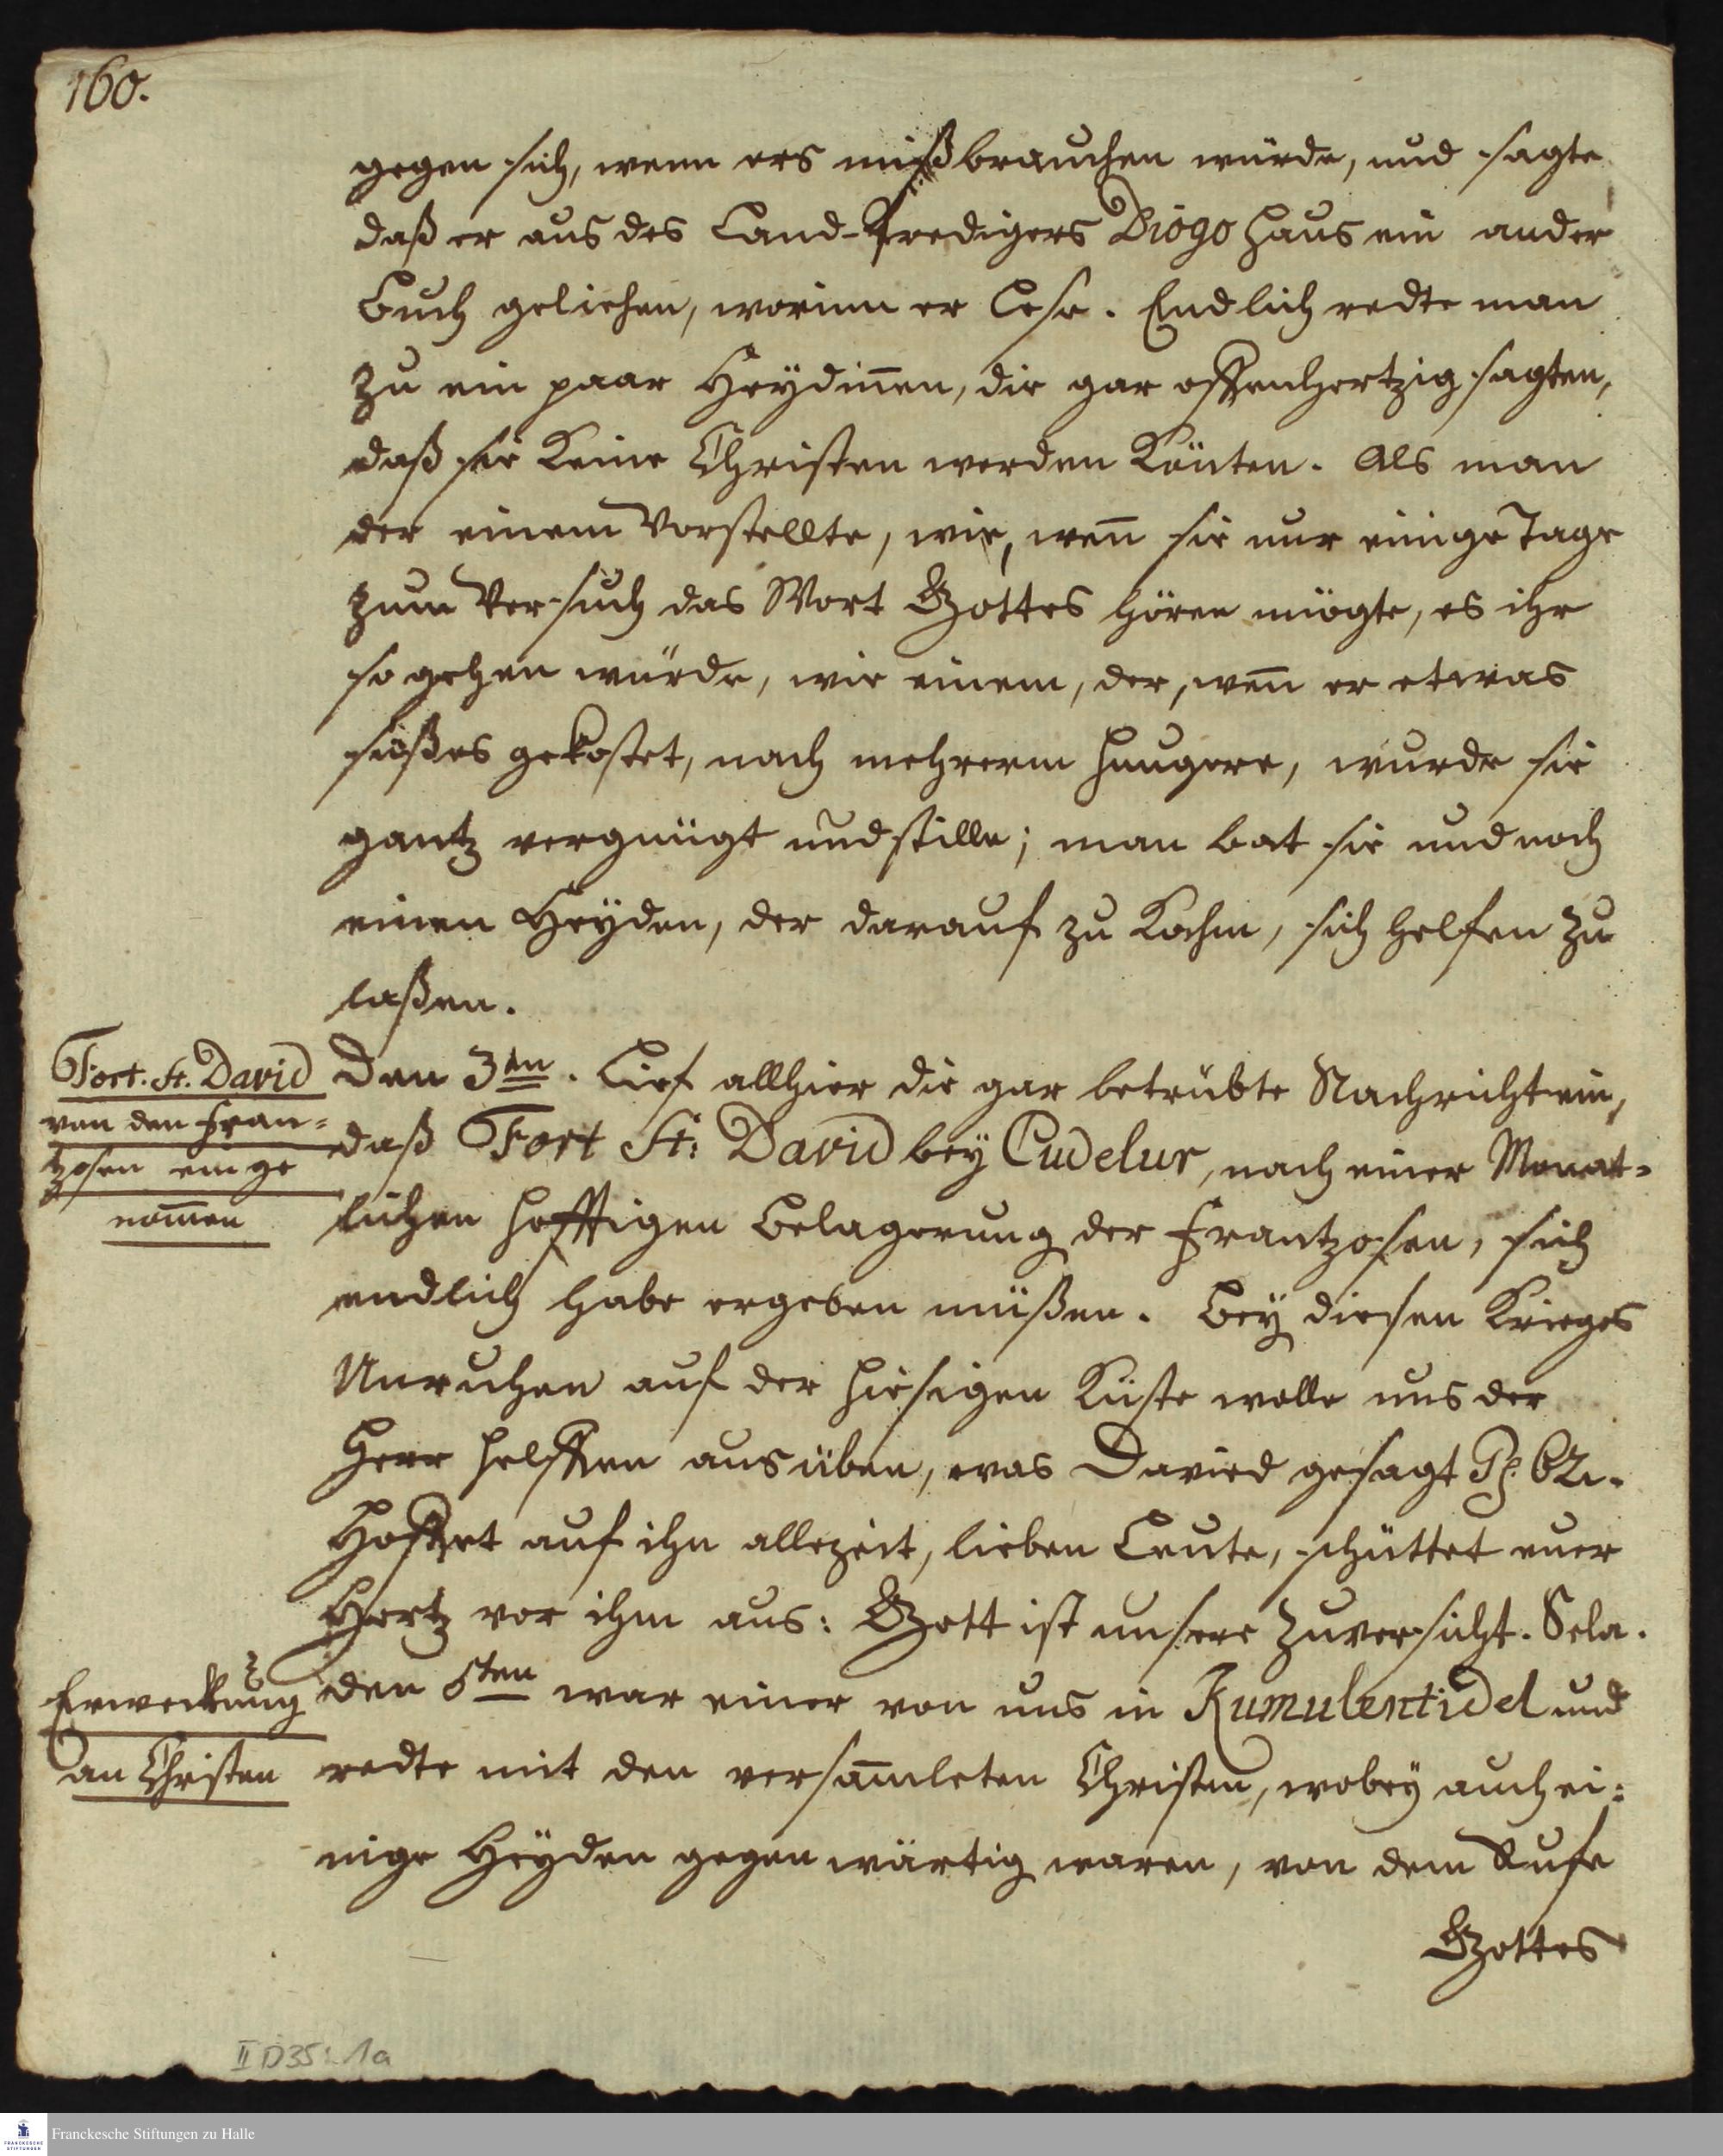 160.
gegen sich, wenn ers mißbrauchen würde, und sagte
daß er aus des Land-Predigers Diogo Haus ein ander
Buch geliehen, worinn er lese. Endlich redte man
zu ein paar Heydiñen, die gar offenhertzig sagten,
daß sie keine Christen werden könten. Als man
der einem vorstellte, wie, weñ sie nur einige Tage
zum Versuch das Wort Gottes hören mögte, es ihr
so gehen würde, wie einem, der, weñ er etwas
süßes gekostet, nach mehrerm hungere, wurde sie
gantz vergnügt und stille; man bat sie und noch
einen Heyden, der darauf zu kahm, sich helfen zu
laßen.
Fort. St. David
von den Fran-
zosen einge
nom̄en
Den 3ten. Lief allhier die gar betrübte Nachricht ein,
daß Fort St: David bey Cudelur, nach einer Monat-
lichen hefftigen Belagerung der Frantzosen, sich
endlich habe ergeben müßen. Bey diesen Krieges
Unruhen auf der hiesigen Küste wolle uns der
Herr helffen ausüben, was David gesagt Ps. 62.
Hoffet auf ihn allezeit, lieben Leute, schüttet euer
Hertz vor ihm aus: Gott ist unsere Zuversicht. Sela.
Erweckung
an Christen
den 5ten war einer von uns in Kumulentidel und
redte mit den versam̄leten Christen, wobey auch ei-
nige Heyden gegenwärtig waren, von dem Rufe
Gottes
II D35: 1a
Franckesche Stiftungen zu Halle
FRANCKESCHE STIFTUNGEN